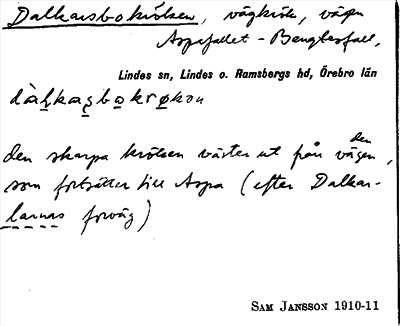 Dalkarsbokröken, vägkrök, vägen
Aspafallet - Bengtesfall,
Lindes sn, Lindes o. Ramsbergs hd, Örebro län
dàl̥kas̥bo̥krøkən
den skarpa kröken väster ut från den vägen,
som fortsätter till Aspa (efter Dalkar-
larnas förväg)
SAM JANSSON 1910-11